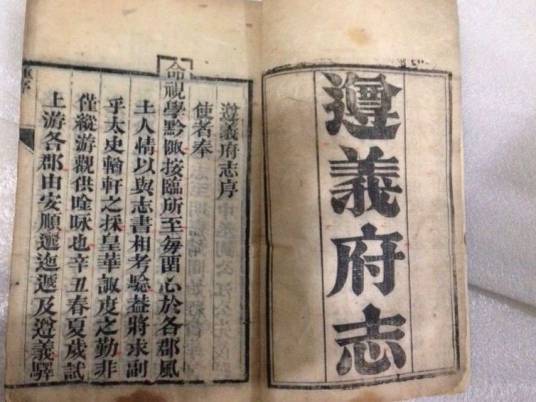 遵義府志
遵義府志序
使者奉
命視學黔陬按臨所至每畱心於各郡風
土人情以與志書相考驗益將求副
乎太史輶軒之採皇華諏度之勤非
僅縱游觀供唫咏也辛丑春夏歲試
上游各郡由安順遞迤及遵義驛